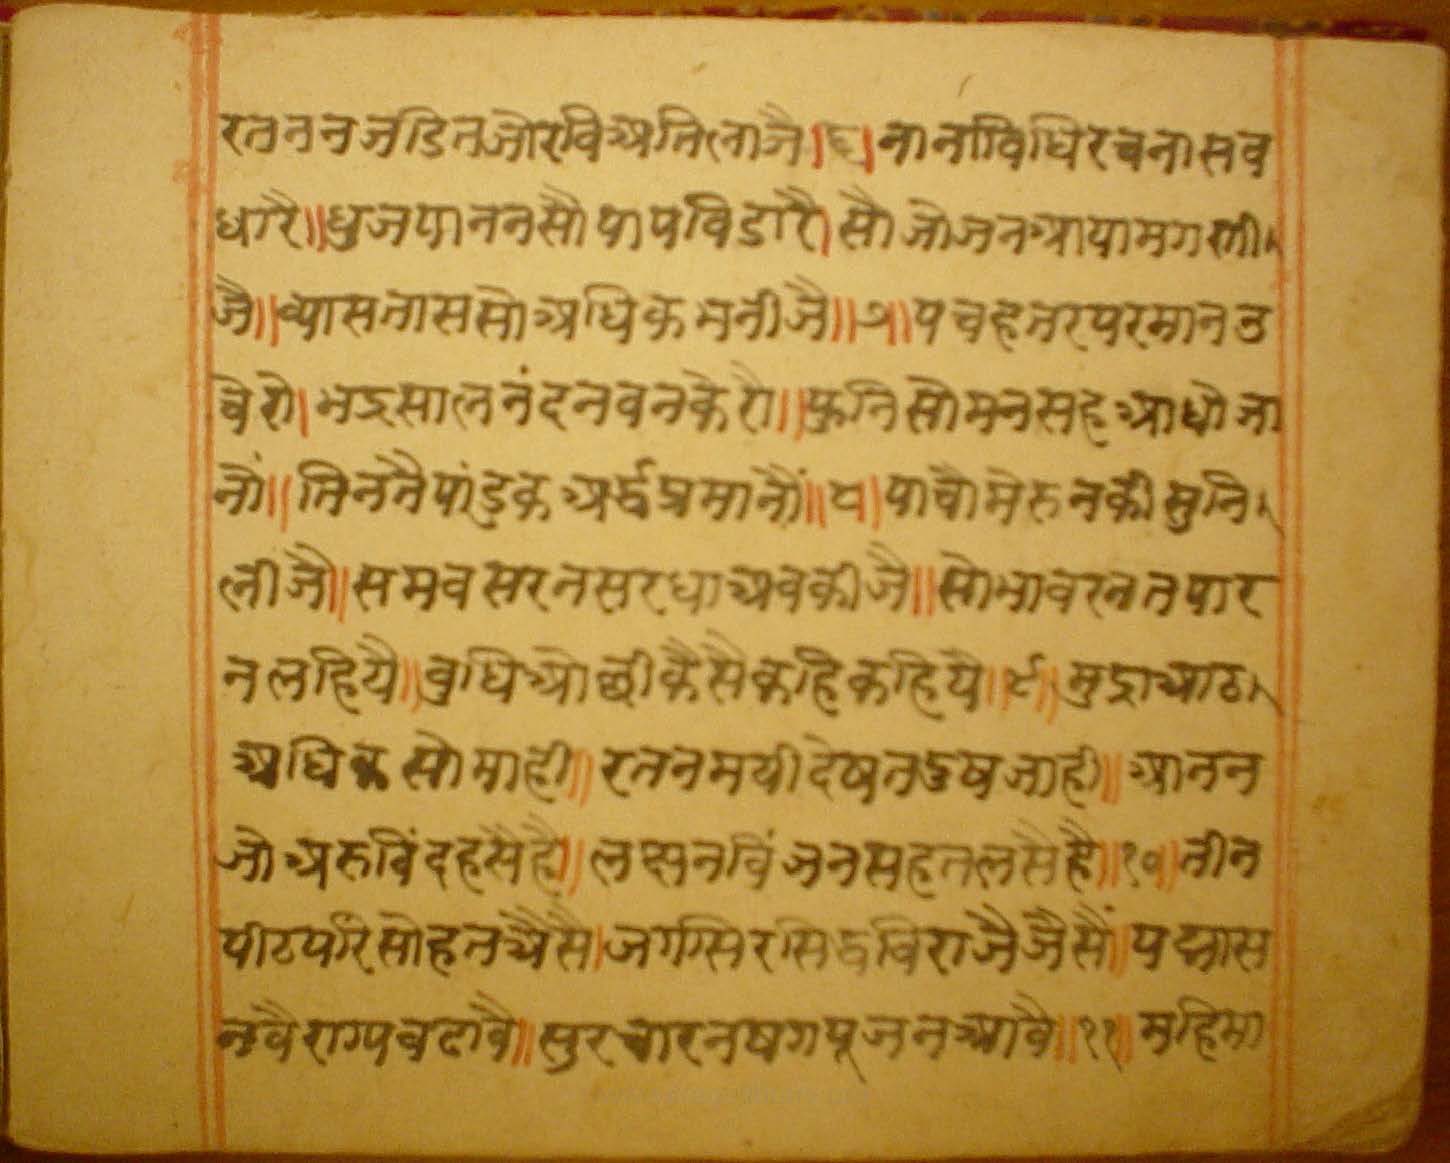 रतननजडितजोरविअतिलाजै।६।नानाविधिरचनासव
धारै॥धुजपाननसौपापविडारै।सौजोजनआयामगणी
जै॥व्यासताससोअधिकभनीजै॥७॥पचहतरपरमानउ
चेरो।भद्रसालनंदनवनकेरो॥फुनिसोमनसहआधोजा
नों॥तिनतैपांडुकअर्द्धप्रमानों॥८।पाचोमेरुनकीसुनि
लीजै॥समवसरनसरधाअवकीजै॥सोभावरनतपार
नलहियै॥वुधिओछीकैसैकहिकहियै॥९॥मुद्राआठ
अधिकसोमाही॥रतनमयीदेषतदुषजाही॥आनन
जोअरुविंदहसैहै॥लष्सनविंजनसहतलसैहै॥१०॥तीन
पीठपरिसोहतअैसै।जगसिरसिद्धविराजैजैसैं॥पद्मास
नवैराग्पवढावै॥सुरचारनषगपूजनआवै॥११॥महिमा